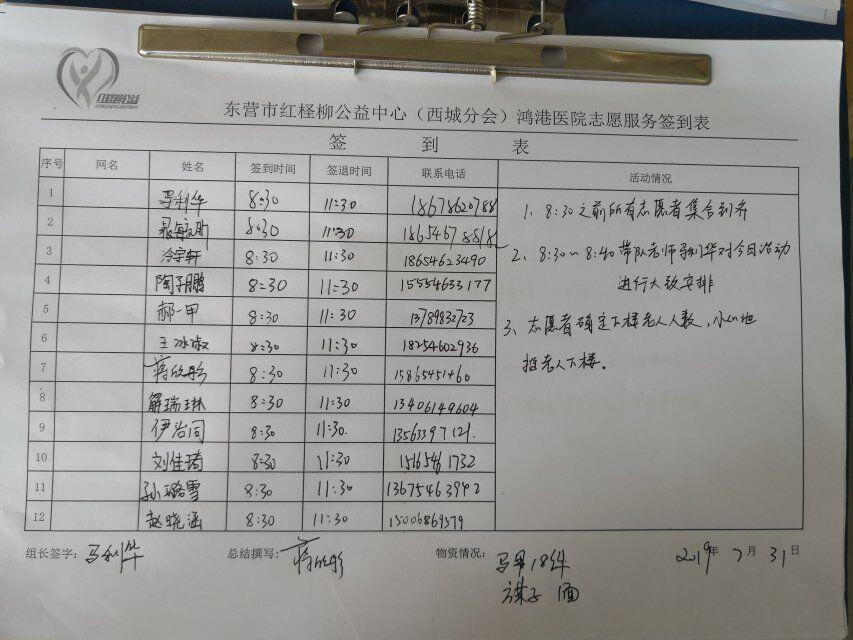 红柽柳公益
东营市红柽柳公益中心（西城分会）鸿港医院志愿服务签到表
签 到 表
序号 网名 姓名 签到时间 签退时间 联系电话 活动情况
1 马利华 8:30 11:30 18678620788
2 8:30 11:30 18654678818
3 冷宇轩 8:30 11:30 18654623490
4 陶子鹏 8:30 11:30 15554633177
5 郝一甲 8:30 11:30 13789832723
6 王冰淑 8:30 11:30 18254602936
7 蒋欣彤 8:30 11:30 15865451460
8 解瑞琳 8:30 11:30 13406149604
9 伊治同 8:30 11:30. 13563397121.
10 刘佳琦 8:30 11:30 15165461732
11 孙璐雪 8:30 11:30 13675463992
12 赵晓涵 8:30 11:30 15006869579
1、8:30之前所有志愿者集合到齐
2、8:30~8:40带队老师马利华对今日活动
进行大致安排
3、志愿者确定下楼老人人数，小心地
推老人下楼。
组长签字：马利华 总结撰写：蒋欣彤 物资情况：马甲18件 2019年7月31日
旗子1面